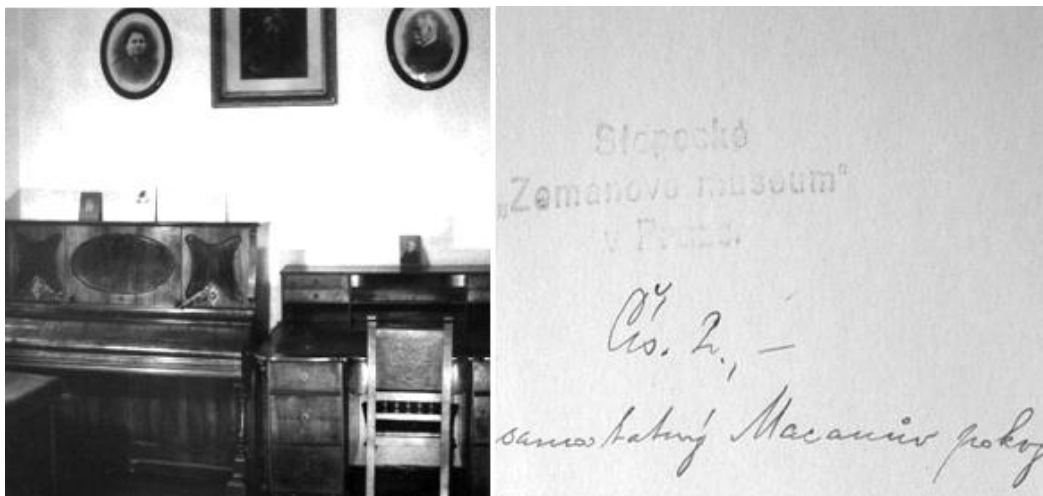 Slepecké
„Zemanovo museum“
v Praze.
Čís. 2., —
samostatný Macanův pokoj